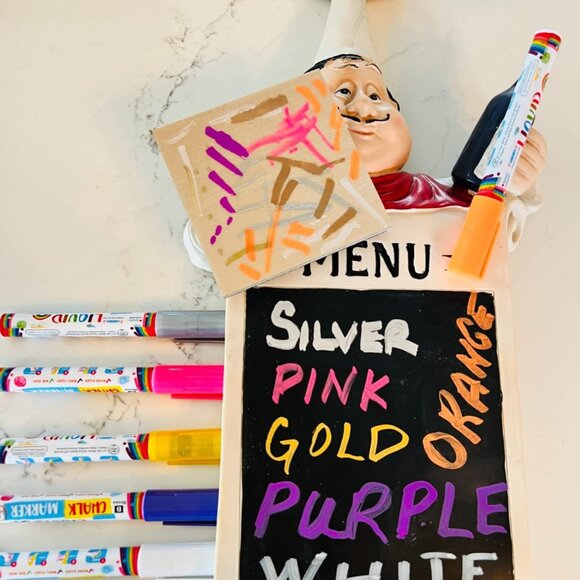 MENU
SILVER
PINK
GOLD
ORANGE
PURPLE
WHITE
LIQUID
LIQUID
LIQUID
CHALK
MARKER